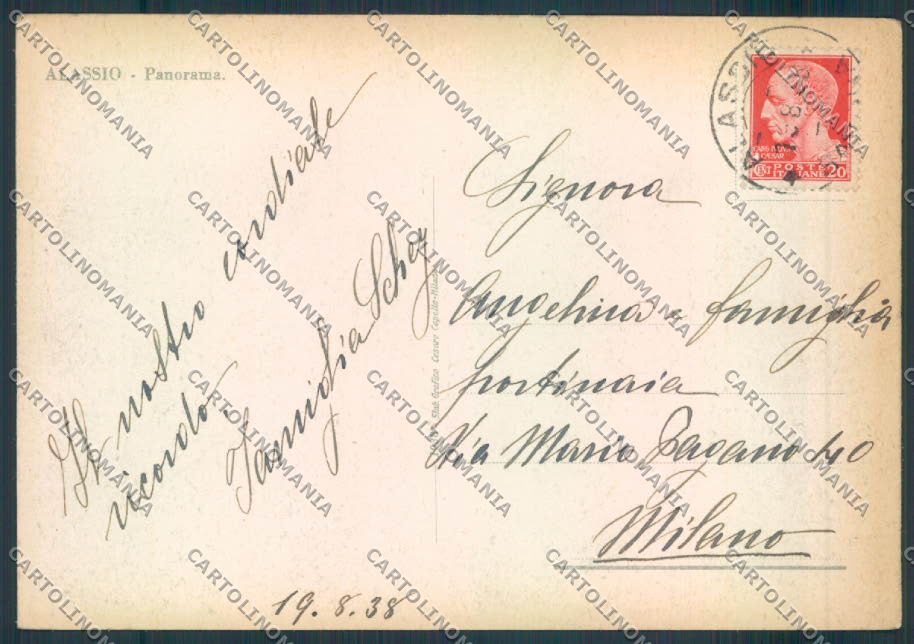 ALASSIO - Panorama.
Il nostro cordiale
ricordo.
Famiglia Scher
19.8.38
Stab. Grafico Cesare Capello - Milano
Signora
Angelina e famiglia
portinaia
Via Mario Pagano 40
Milano
CAESAR
POSTE
ITALIANE
CENT 20
CARTOLINOMANIA